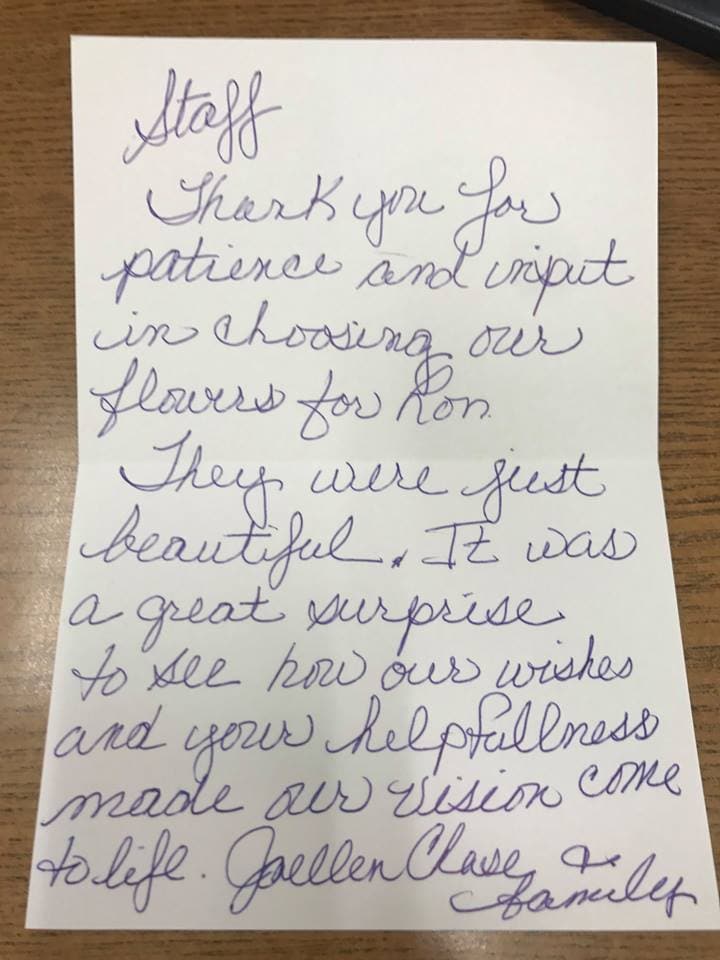 Staff
Thank you for
patience and input
in choosing our
flowers for Ron.
They were just
beautiful. It was
a great surprise
to see how our wishes
and your helpfullness
made our vision come
to life. Joellen Chase &
family